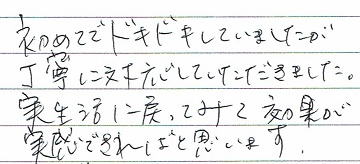 初めてでドキドキしていましたが
丁寧に対応していただきました。
実生活に戻ってみて効果が
実感できればと思います.